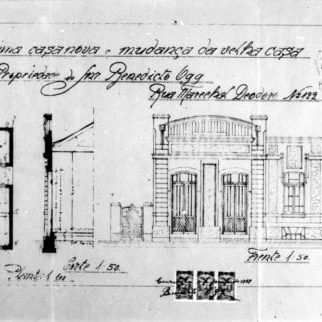 uma casa nova e mudança da velha casa
Propriedade do Snr Benedicto Ogg
Rua Marechal Deodoro No 122
Corte 1.50.
Frente 1.50.
Planta 1.100